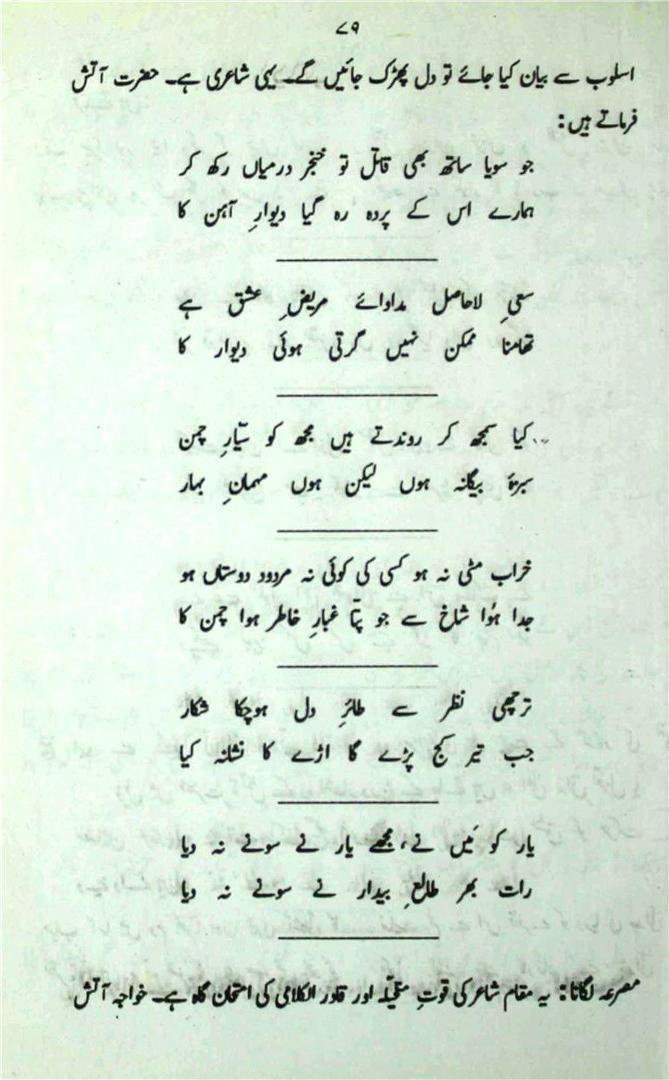 ۷۹
اسلوب سے بیان کیا جائے تو دل پھڑک جائیں گے۔ یہی شاعری ہے۔ حضرت آتش
فرماتے ہیں:
جو سویا ساتھ بھی قاتل تو خنجر درمیاں رکھ کر
ہمارے اس کے پردہ رہ گیا دیوارِ آہن کا
سعیِ لاحاصل مداوائے مریضِ عشق ہے
تھامنا ممکن نہیں گرتی ہوئی دیوار کا
کیا سمجھ کر روندتے ہیں مجھ کو سیّارِ چمن
سبزۂ بیگانہ ہوں لیکن ہوں مہمانِ بہار
خراب مٹی نہ ہو کسی کی کوئی نہ مردود دوستاں ہو
جدا ہُوا شاخ سے جو پتّا غبارِ خاطر ہوا چمن کا
ترچھی نظر سے طائرِ دل ہوچکا شکار
جب تیر کج پڑے گا اڑے گا نشانہ کیا
یار کو مَیں نے، مجھے یار نے سونے نہ دیا
رات بھر طالعِ بیدار نے سونے نہ دیا
مصرعہ لگانا: یہ مقام شاعر کی قوتِ متخیّلہ اور قادر الکلامی کی امتحان گاہ ہے۔ خواجہ آتش